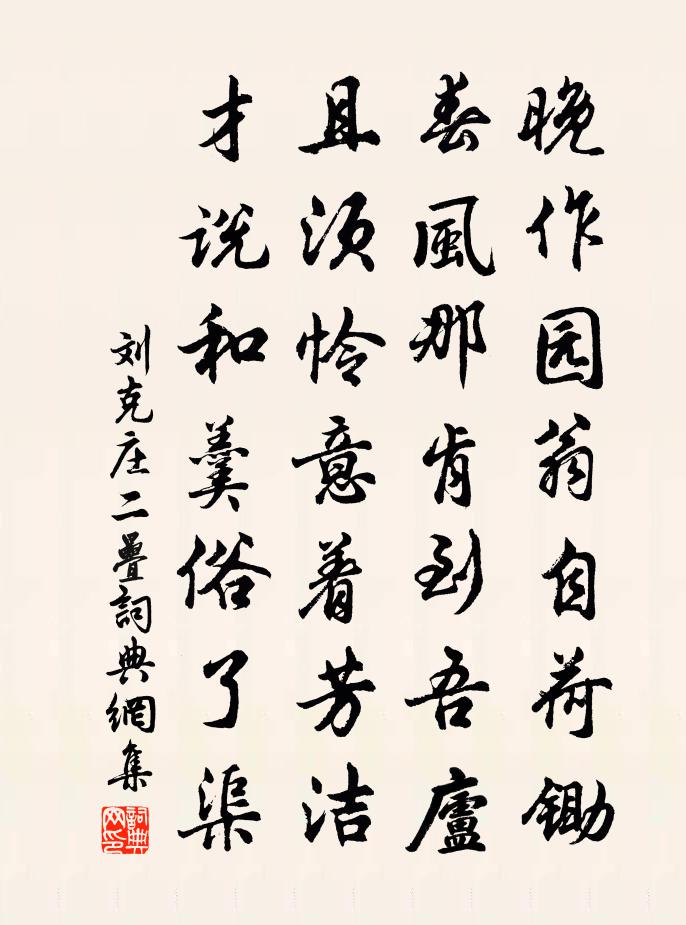 晚作园翁自荷锄
春風那肯到吾廬
且须怜意着芳洁
才说和羹俗了渠
刘克庄二疊詞典網集
詞典网印